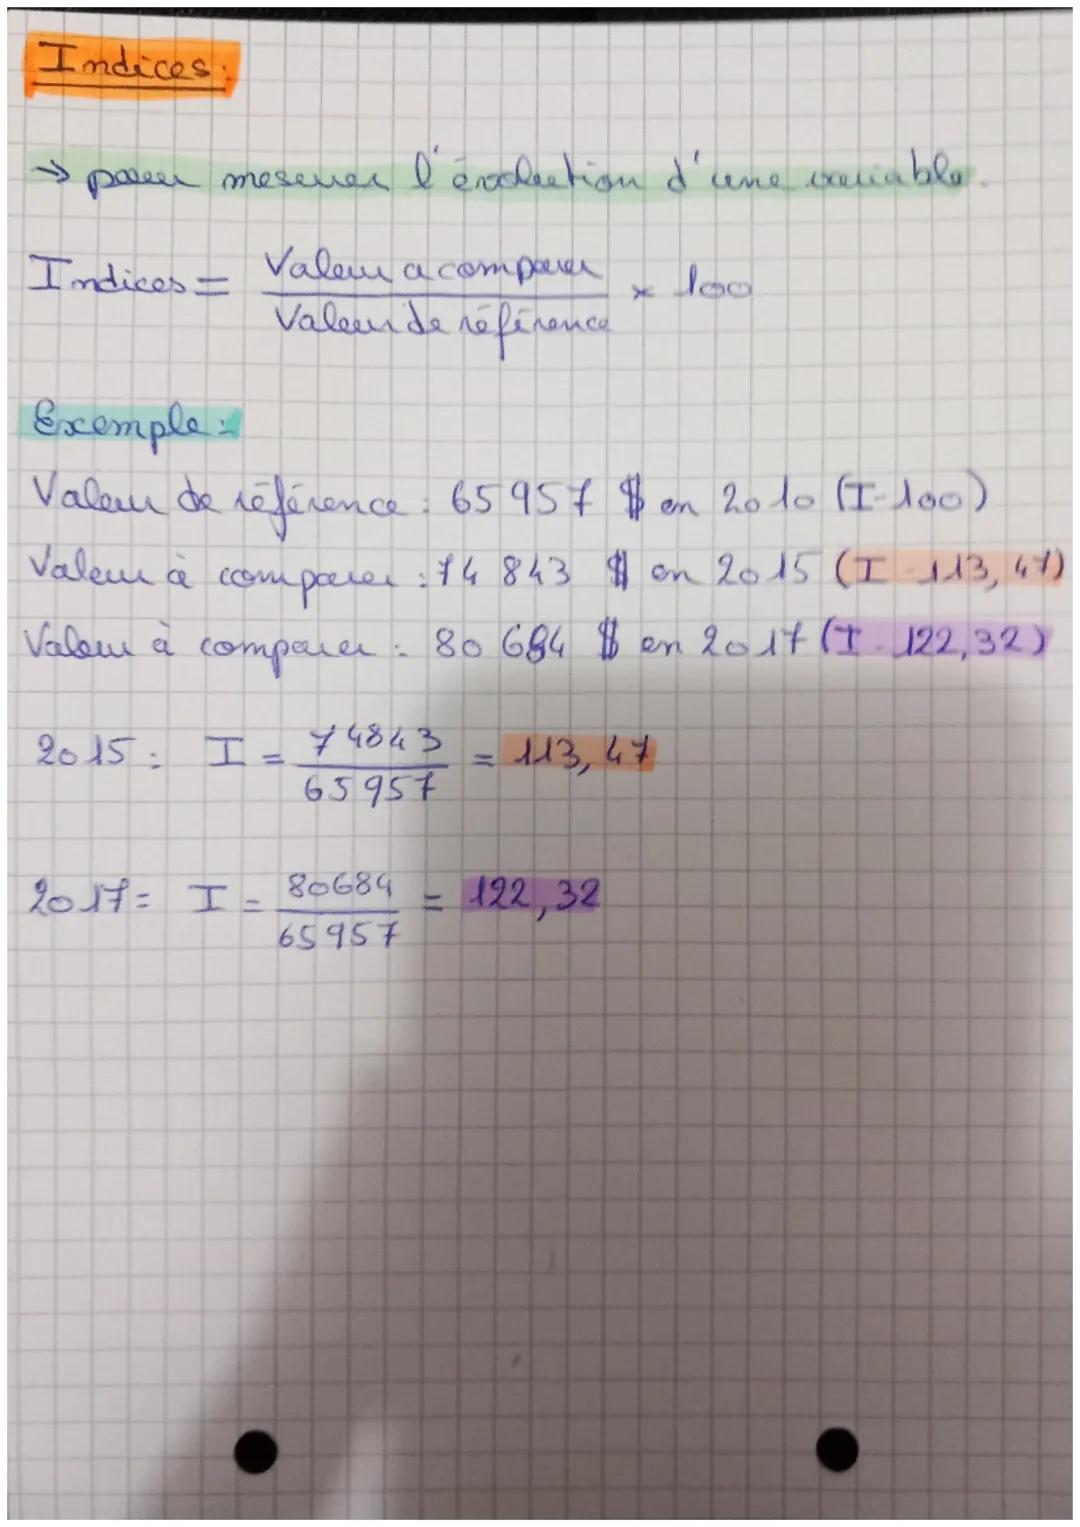 Indices:
→ pour mesurer l'évolution d'une variable.
Indices = Valeur a comparer / Valeur de référence × 100
Exemple:
Valeur de référence : 65 957 $ en 2010 (I-100)
Valeur à comparer : 74 843 $ en 2015 (I-113,47)
Valeur à comparer : 80 684 $ en 2017 (I-122,32)
2015: I = 74843 / 65957 = 113,47
2017= I = 80684 / 65957 = 122,32